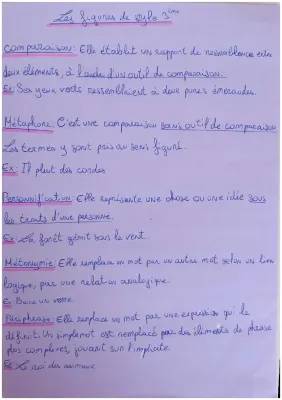 Les figures de style 3ème
Comparaison: Elle établit un rapport de ressemblance entre
deux éléments, à l'aide d'un outil de comparaison.
Ex: Ses yeux verts ressemblaient à deux pures émeraudes.
Métaphore: C'est une comparaison sans outil de comparaison
Les termes y sont pris au sens figuré.
Ex: Il pleut des cordes
Personnification: Elle représente une chose ou une idée sous
les traits d'une personne.
Ex: La forêt gémit sous le vent.
Métonymie: Elle remplace un mot par un autre mot selon un lien
logique, par une relation analogique.
Ex: Boire un verre.
Périphrase: Elle remplace un mot par une expression qui le
définit. Un simple mot est remplacé par des éléments de phrase
plus complexes, jouant sur l'implicite.
Ex: Le roi des animaux